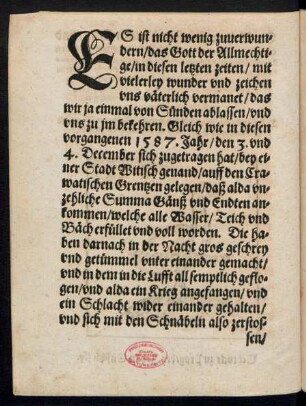 ES ist nicht wenig zuuerwun-
dern/das Gott der Allmechti-
ge/in diesen letzten zeiten/ mit
vielerley wunder vnd zeichen
vns väterlich vermanet/das
wir ja einmal von Sünden ablassen/vnd
vns zu jm bekehren. Gleich wie in diesen
vorgangenen 1587. Jahr/den 3. vnd
4. December sich zugetragen hat/bey ei-
ner Stadt Witsch genand/auff den Cra-
watischen Grentzen gelegen/daß alda vn-
zehliche Summa Gänß vnd Endten an-
kommen/welche alle Wasser/Teich vnd
Bäch erfüllet vnd voll worden. Die ha-
ben darnach in der Nacht gros geschrey
vnd getümmel vnter einander gemacht/
vnd in dem in die Lufft all semptlich geflo-
gen/vnd alda ein Krieg angefangen/vnd
ein Schlacht wider einander gehalten/
vnd sich mit den Schnäbeln also zerstos-
sen/